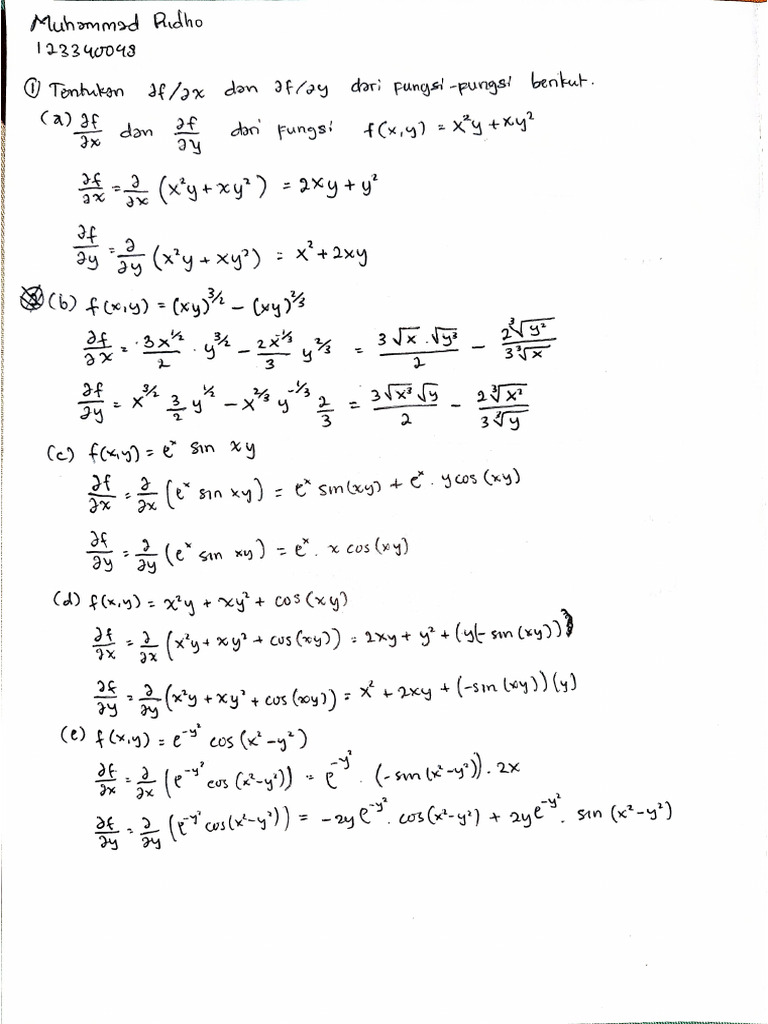 Muhammad Ridho
123340048
① Tentukan ∂f/∂x dan ∂f/∂y dari fungsi-fungsi berikut.
(a) ∂f/∂x dan ∂f/∂y dari fungsi f(x,y) = x²y + xy²
∂f/∂x = ∂/∂x (x²y + xy²) = 2xy + y²
∂f/∂y = ∂/∂y (x²y + xy²) = x² + 2xy
(b) f(x,y) = (xy)^3/2 − (xy)^2/3
∂f/∂x = 3x^1/2/2 · y^3/2 − 2x^-1/3/3 y^2/3 = 3√x · √y³/2 − 2∛y²/3∛x
∂f/∂y = x^3/2 3/2 y^1/2 − x^2/3 y^-1/3 2/3 = 3√x³ √y/2 − 2∛x²/3∛y
(c) f(x,y) = eˣ sin xy
∂f/∂x = ∂/∂x (eˣ sin xy) = eˣ sin(xy) + eˣ · y cos (xy)
∂f/∂y = ∂/∂y (eˣ sin xy) = eˣ · x cos(xy)
(d) f(x,y) = x²y + xy² + cos(xy)
∂f/∂x = ∂/∂x (x²y + xy² + cos(xy)) = 2xy + y² + (y(− sin(xy)))
∂f/∂y = ∂/∂y (x²y + xy² + cos(xy)) = x² + 2xy + (−sin(xy))(y)
(e) f(x,y) = e^-y² cos(x²−y²)
∂f/∂x = ∂/∂x (e^-y² cos (x²−y²)) = e^-y² · (−sin(x²−y²)) · 2x
∂f/∂y = ∂/∂y (e^-y² cos(x²−y²)) = −2ye^-y² · cos(x²−y²) + 2ye^-y² · sin (x²−y²)